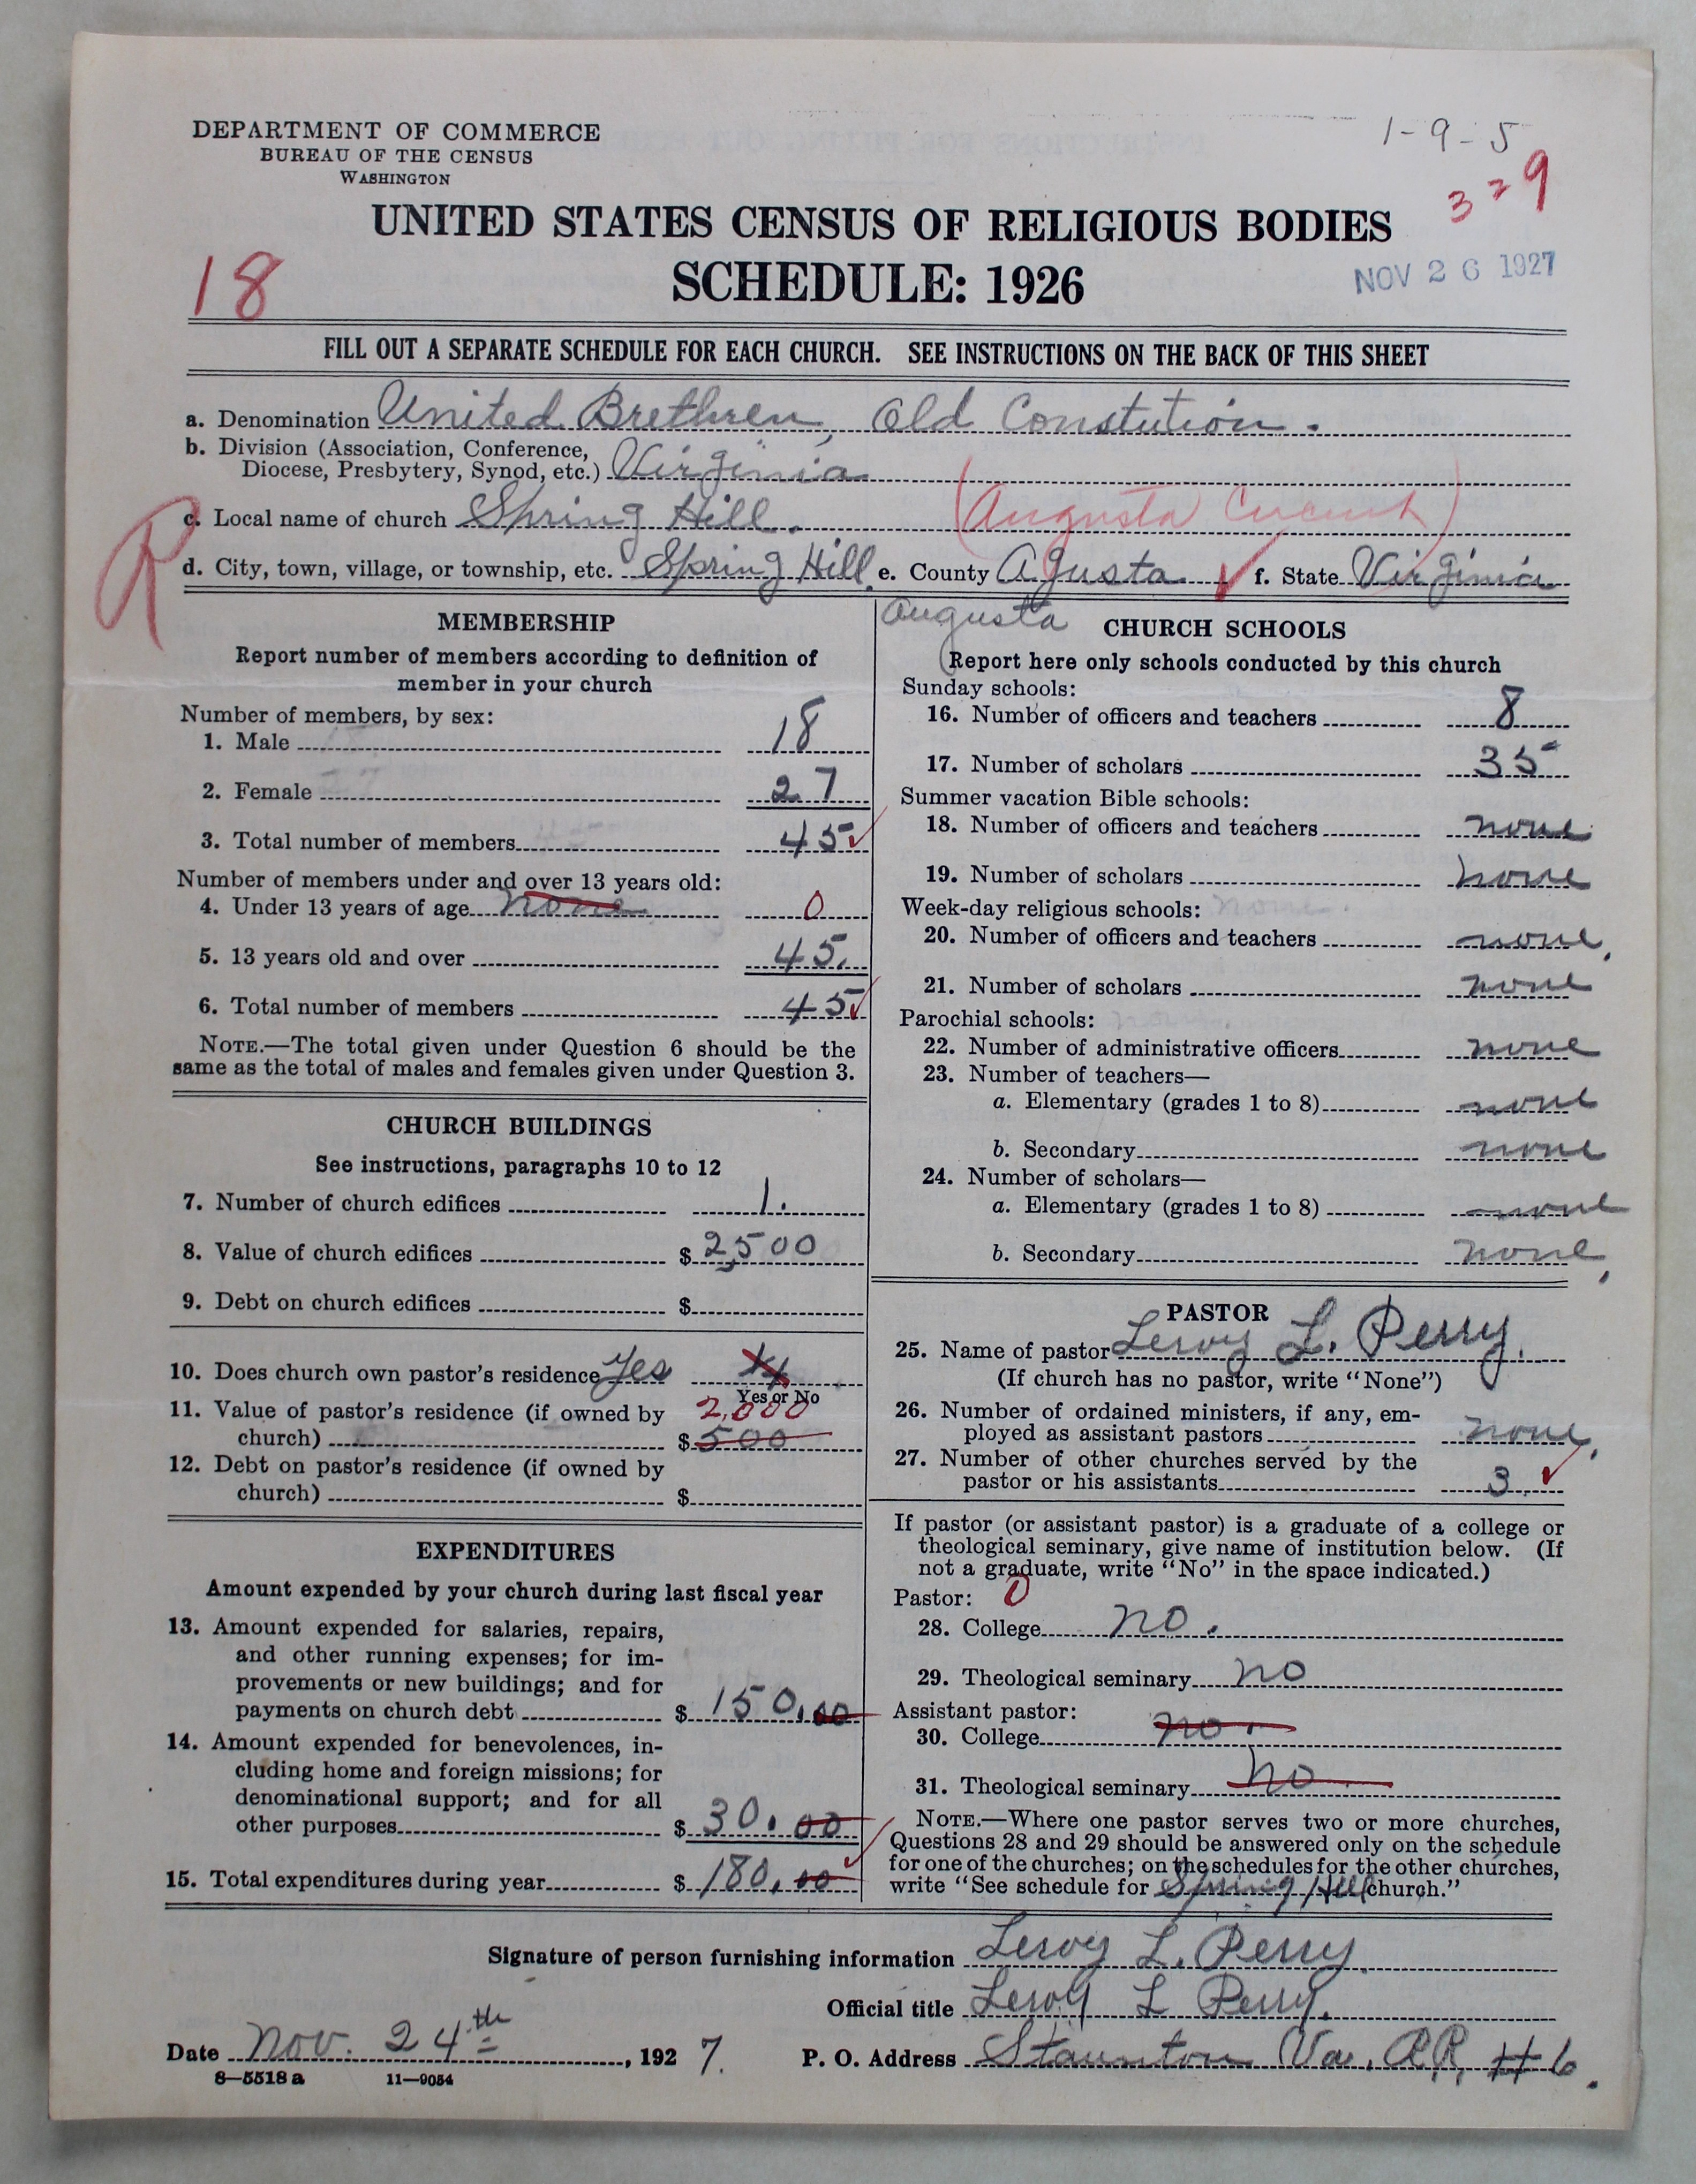 DEPARTMENT OF COMMERCE
BUREAU OF THE CENSUS
WASHINGTON
1-9-5
3 = 9
UNITED STATES CENSUS OF RELIGIOUS BODIES
SCHEDULE: 1926
18
NOV 26 1927
FILL OUT A SEPARATE SCHEDULE FOR EACH CHURCH. SEE INSTRUCTIONS ON THE BACK OF THIS SHEET
a. Denomination United Brethren, Old Constution.
b. Division (Association, Conference,
Diocese, Presbytery, Synod, etc.) Virginia
c. Local name of church Spring Hill. (Augusta Circuit)
R
d. City, town, village, or township, etc. Spring Hill. e. County Agusta f. State Virginia
Augusta
MEMBERSHIP
Report number of members according to definition of
member in your church
Number of members, by sex:
1. Male 18
2. Female 27
3. Total number of members 45
Number of members under and over 13 years old:
4. Under 13 years of age none 0
5. 13 years old and over 45.
6. Total number of members 45
NOTE.—The total given under Question 6 should be the
same as the total of males and females given under Question 3.
CHURCH BUILDINGS
See instructions, paragraphs 10 to 12
7. Number of church edifices 1.
8. Value of church edifices $ 2,500
9. Debt on church edifices $
10. Does church own pastor's residence Yes
Yes or No
11. Value of pastor's residence (if owned by 2,000
church) $ 500
12. Debt on pastor's residence (if owned by
church) $
EXPENDITURES
Amount expended by your church during last fiscal year
13. Amount expended for salaries, repairs,
and other running expenses; for im-
provements or new buildings; and for
payments on church debt $ 150.00
14. Amount expended for benevolences, in-
cluding home and foreign missions; for
denominational support; and for all
other purposes $ 30.00
15. Total expenditures during year $ 180.00
CHURCH SCHOOLS
Report here only schools conducted by this church
Sunday schools:
16. Number of officers and teachers 8
17. Number of scholars 35
Summer vacation Bible schools:
18. Number of officers and teachers none
19. Number of scholars none
Week-day religious schools: none.
20. Number of officers and teachers none.
21. Number of scholars none
Parochial schools:
22. Number of administrative officers none
23. Number of teachers—
a. Elementary (grades 1 to 8) none
b. Secondary none
24. Number of scholars—
a. Elementary (grades 1 to 8) none
b. Secondary none.
PASTOR
25. Name of pastor Leroy L. Perry.
(If church has no pastor, write "None")
26. Number of ordained ministers, if any, em-
ployed as assistant pastors none.
27. Number of other churches served by the
pastor or his assistants 3.
If pastor (or assistant pastor) is a graduate of a college or
theological seminary, give name of institution below. (If
not a graduate, write "No" in the space indicated.)
Pastor: 0
28. College no.
29. Theological seminary no
Assistant pastor:
30. College no.
31. Theological seminary no
NOTE.—Where one pastor serves two or more churches,
Questions 28 and 29 should be answered only on the schedule
for one of the churches; on the schedules for the other churches,
write "See schedule for Spring Hill church."
Signature of person furnishing information Leroy L. Perry.
Official title Leroy L Perry.
Date Nov. 24th, 1927. P. O. Address Staunton Va. R.R. #6.
8—5518 a 11—9054